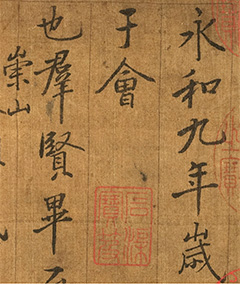 永和九年歲
于會
也羣賢畢
崇山